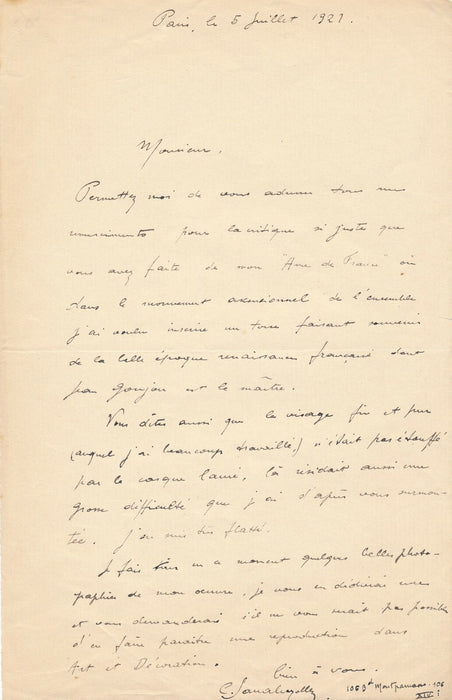 Paris, le 5 Juillet 1921.
Monsieur,
Permettez moi de vous adresser tous mes
remerciements pour la critique si juste que
vous avez faite de mon "Ame de France" où
dans le mouvement ascensionnel de l'ensemble
j'ai voulu inscrire un torse faisant souvenir
de la belle époque renaissance française dont
Jean Goujon est le maître.
Vous dites aussi que le visage fin et pur
(auquel j'ai beaucoup travaillé) n'était pas étouffé
par le casque lauré, là résidait aussi une
grosse difficulté que j'ai d'après vous surmon-
tée. J'en suis très flatté.
Je fais tirer en ce moment quelques belles photo-
graphies de mon oeuvre, je vous en dédierai une
et vous demanderai s'il ne vous serait pas possible
d'en faire paraître une reproduction dans
Art et Décoration.
bien à vous.
C. Sarrabezolles 105 Bd Montparnasse
XIV